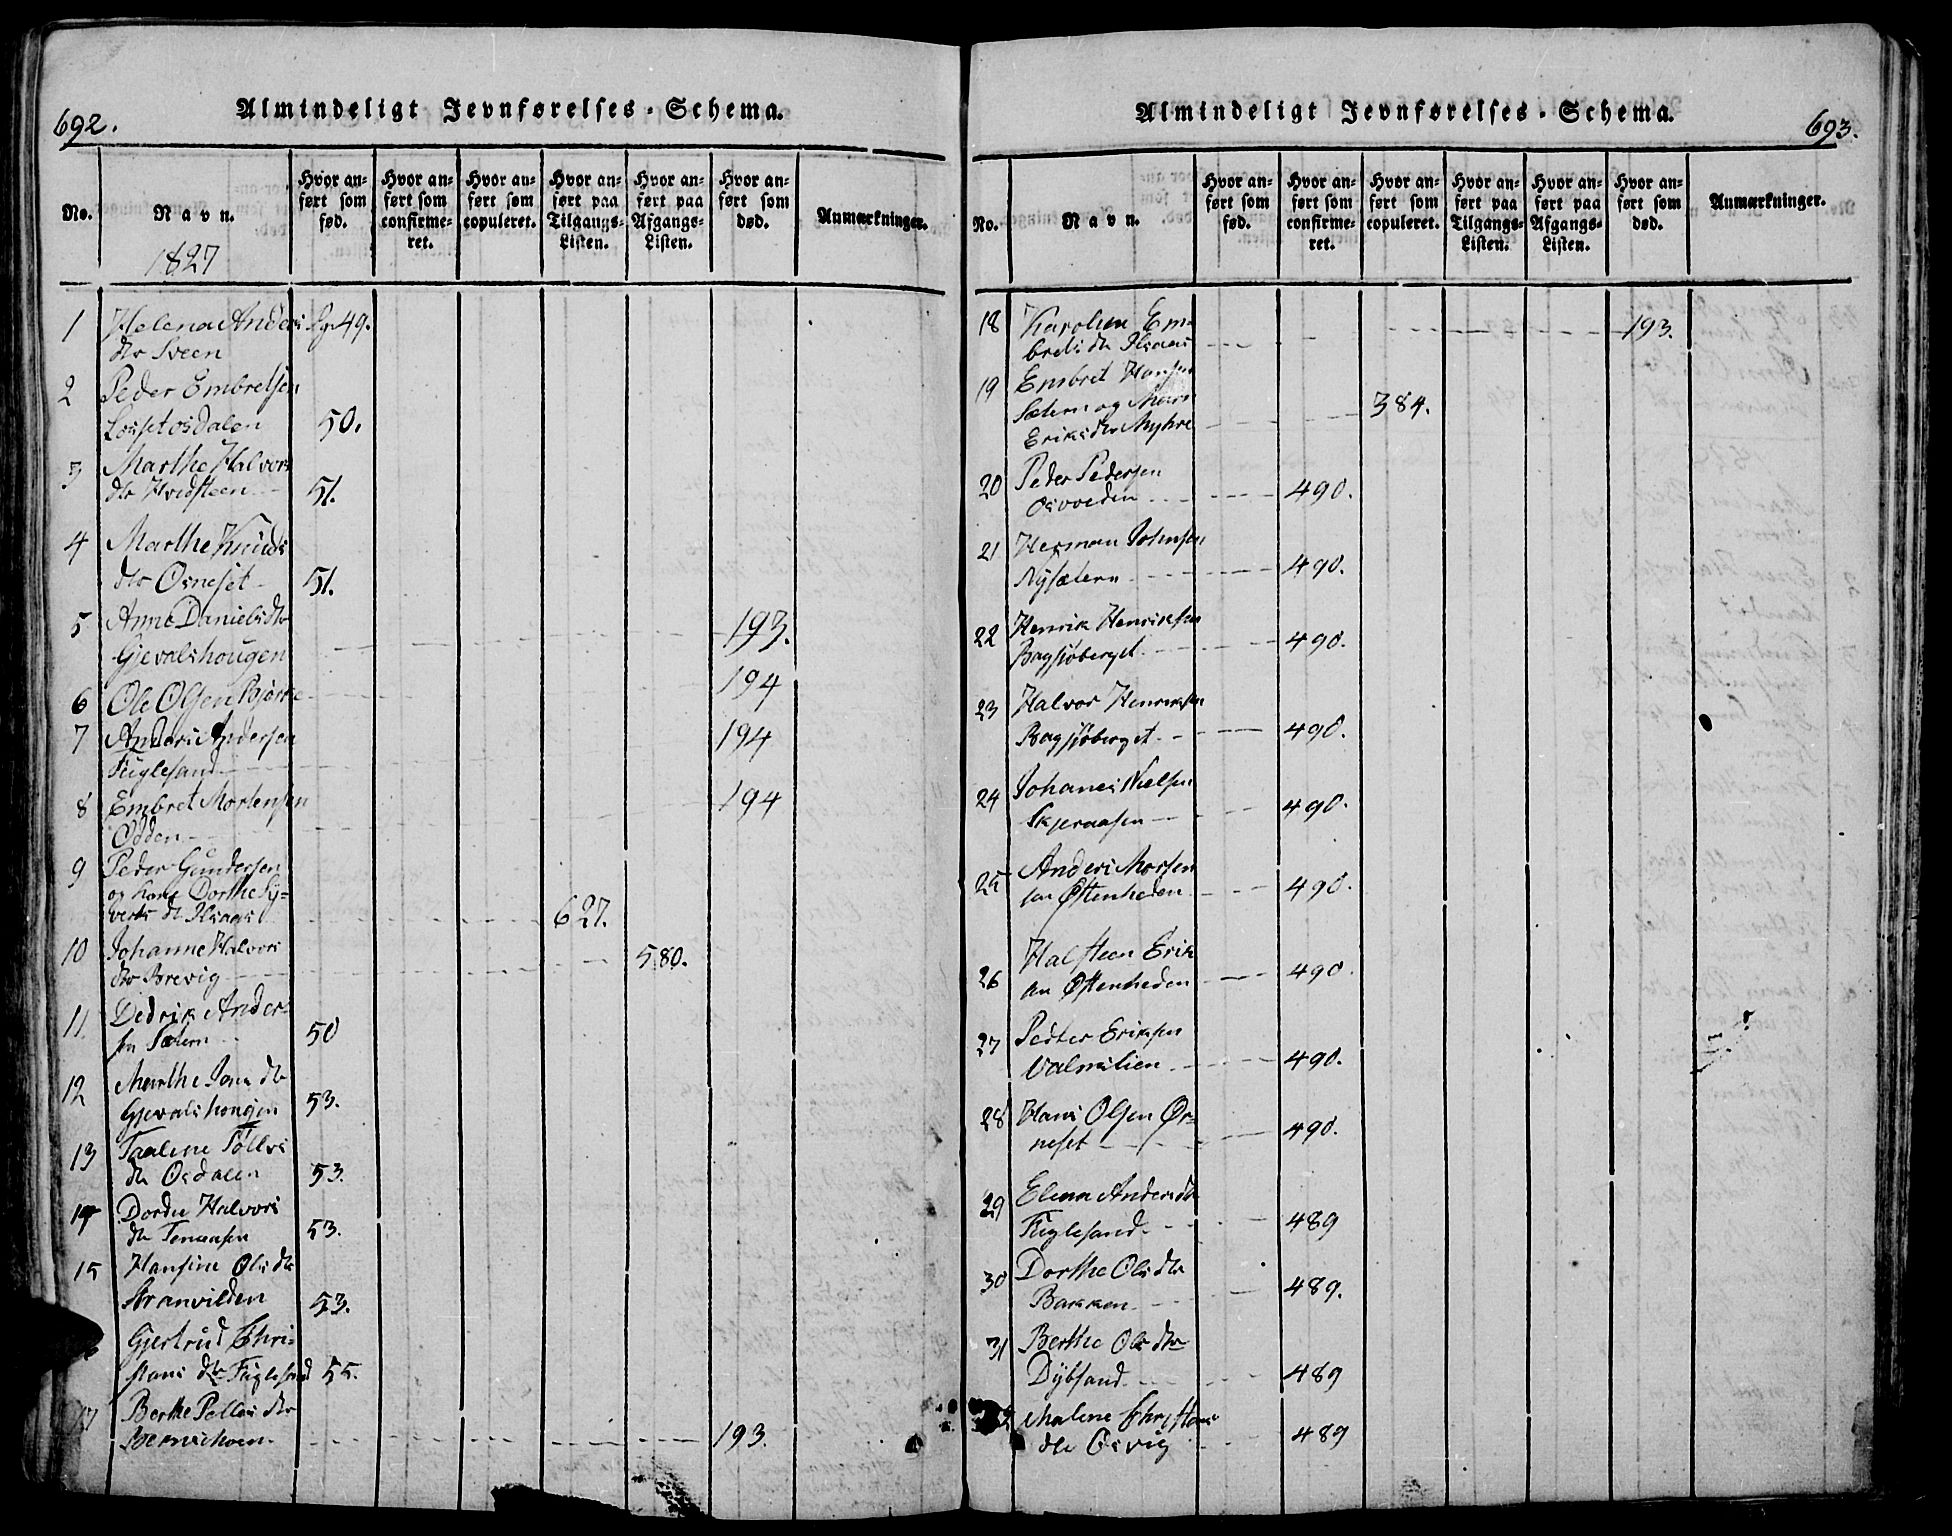 692.
Almindeligt Jevnførelses-Schema.
No.
Navn.
Hvor an-
ført som
fød.
Hvor an-
ført som
confirme-
ret.
Hvor an-
ført som
copuleret.
Hvor an-
ført paa
Tilgangs-
Listen.
Hvor an-
ført paa
Afgangs-
Listen.
Hvor an-
ført som
død.
Anmærkninger.
1827
1 Helena Anders
dtr Sveen Pg 49.
2 Peder Embretsen
Losset osdalen 50.
3 Marthe Halvors
dtr Hvidsteen 51.
4 Marthe Knuds
dtr Orneset 51.
5 Anne Daniels dtr
Gjevalshougen 193.
6 Ole Olsen Bjørke 194
7 Anders Andersen
Fuglesand 194
8 Embret Mortensen
Odden 194
9 Peder Gundersen
og Kone Dorthe Sy-
verts dtr Ilsaas 627.
10 Johanne Halvors
dtr Brevig 580.
11 Dedrik Ander-
sen Sætern 50
12 Marthe Jons dtr
Gjevalshougen 53.
13 Taalene Tollvs
dtr Osdalen 53.
14 Dordie Halvors
dtr 53.
15 Hansine Ols dtr
Stranvilden 53.
Gjertrud Chri-
stians dtr Fuglesand 55.
17 Berthe Pelles dtr
Berneshoen 193.
Almindeligt Jevnførelses-Schema.
693.
No.
Navn.
Hvor an-
ført som
fød.
Hvor an-
ført som
confirme-
ret.
Hvor an-
ført som
copuleret.
Hvor an-
ført paa
Tilgangs-
Listen.
Hvor an-
ført paa
Afgangs-
Listen.
Hvor an-
ført som
død.
Anmærkninger.
18 Karolina Em-
brets dtr Ilsaas 193.
19 Embret Hansen
Sætern og Mari
Eriks dtr Myhre 384.
20 Peder Pedersen
Osvolden 490.
21 Herman Johnsen
Nysætern 490.
22 Henrik Henriksen
Bagsjøberget 490.
23 Halvor Henriksen
Bagsjøberget 490.
24 Johanes Nielsen
Skjeraasen 490.
25 Anders Morten-
sen Østenheden 490.
26 Halsteen Erik
sen Østenheden 490.
27 Petter Eriksen
Valmilien 490.
28 Hans Olsen Ør-
neset 490.
29 Elena Anders dtr
Fuglesand 489
30 Dorthe Ols dtr
Bakken 489.
31 Berthe Ols dtr
Dybsand 489
Malene Christians
dtr Osvig 489